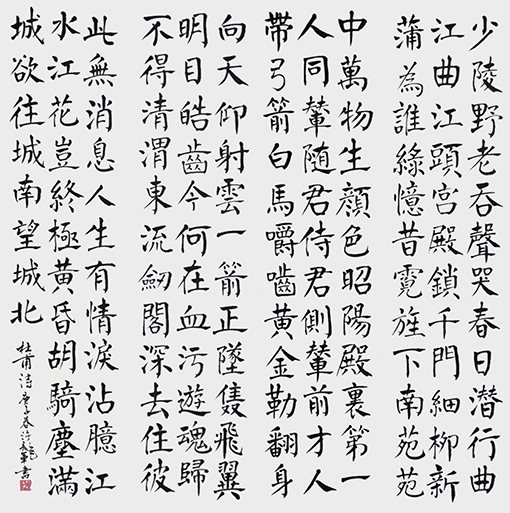 少陵野老吞聲哭春日潛行曲
江曲江頭宮殿鎖千門細柳新
蒲為誰綠憶昔霓旌下南苑苑
中萬物生顏色昭陽殿裏第一
人同輦随君侍君側輦前才人
帶弓箭白馬嚼嚙黃金勒翻身
向天仰射雲一箭正墜隻飛翼
明目皓齒今何在血污遊魂歸
不得清渭東流劒閣深去住彼
此無消息人生有情淚沾臆江
水江花豈終極黃昏胡騎塵滿
城欲往城南望城北
杜甫詩庚子春書